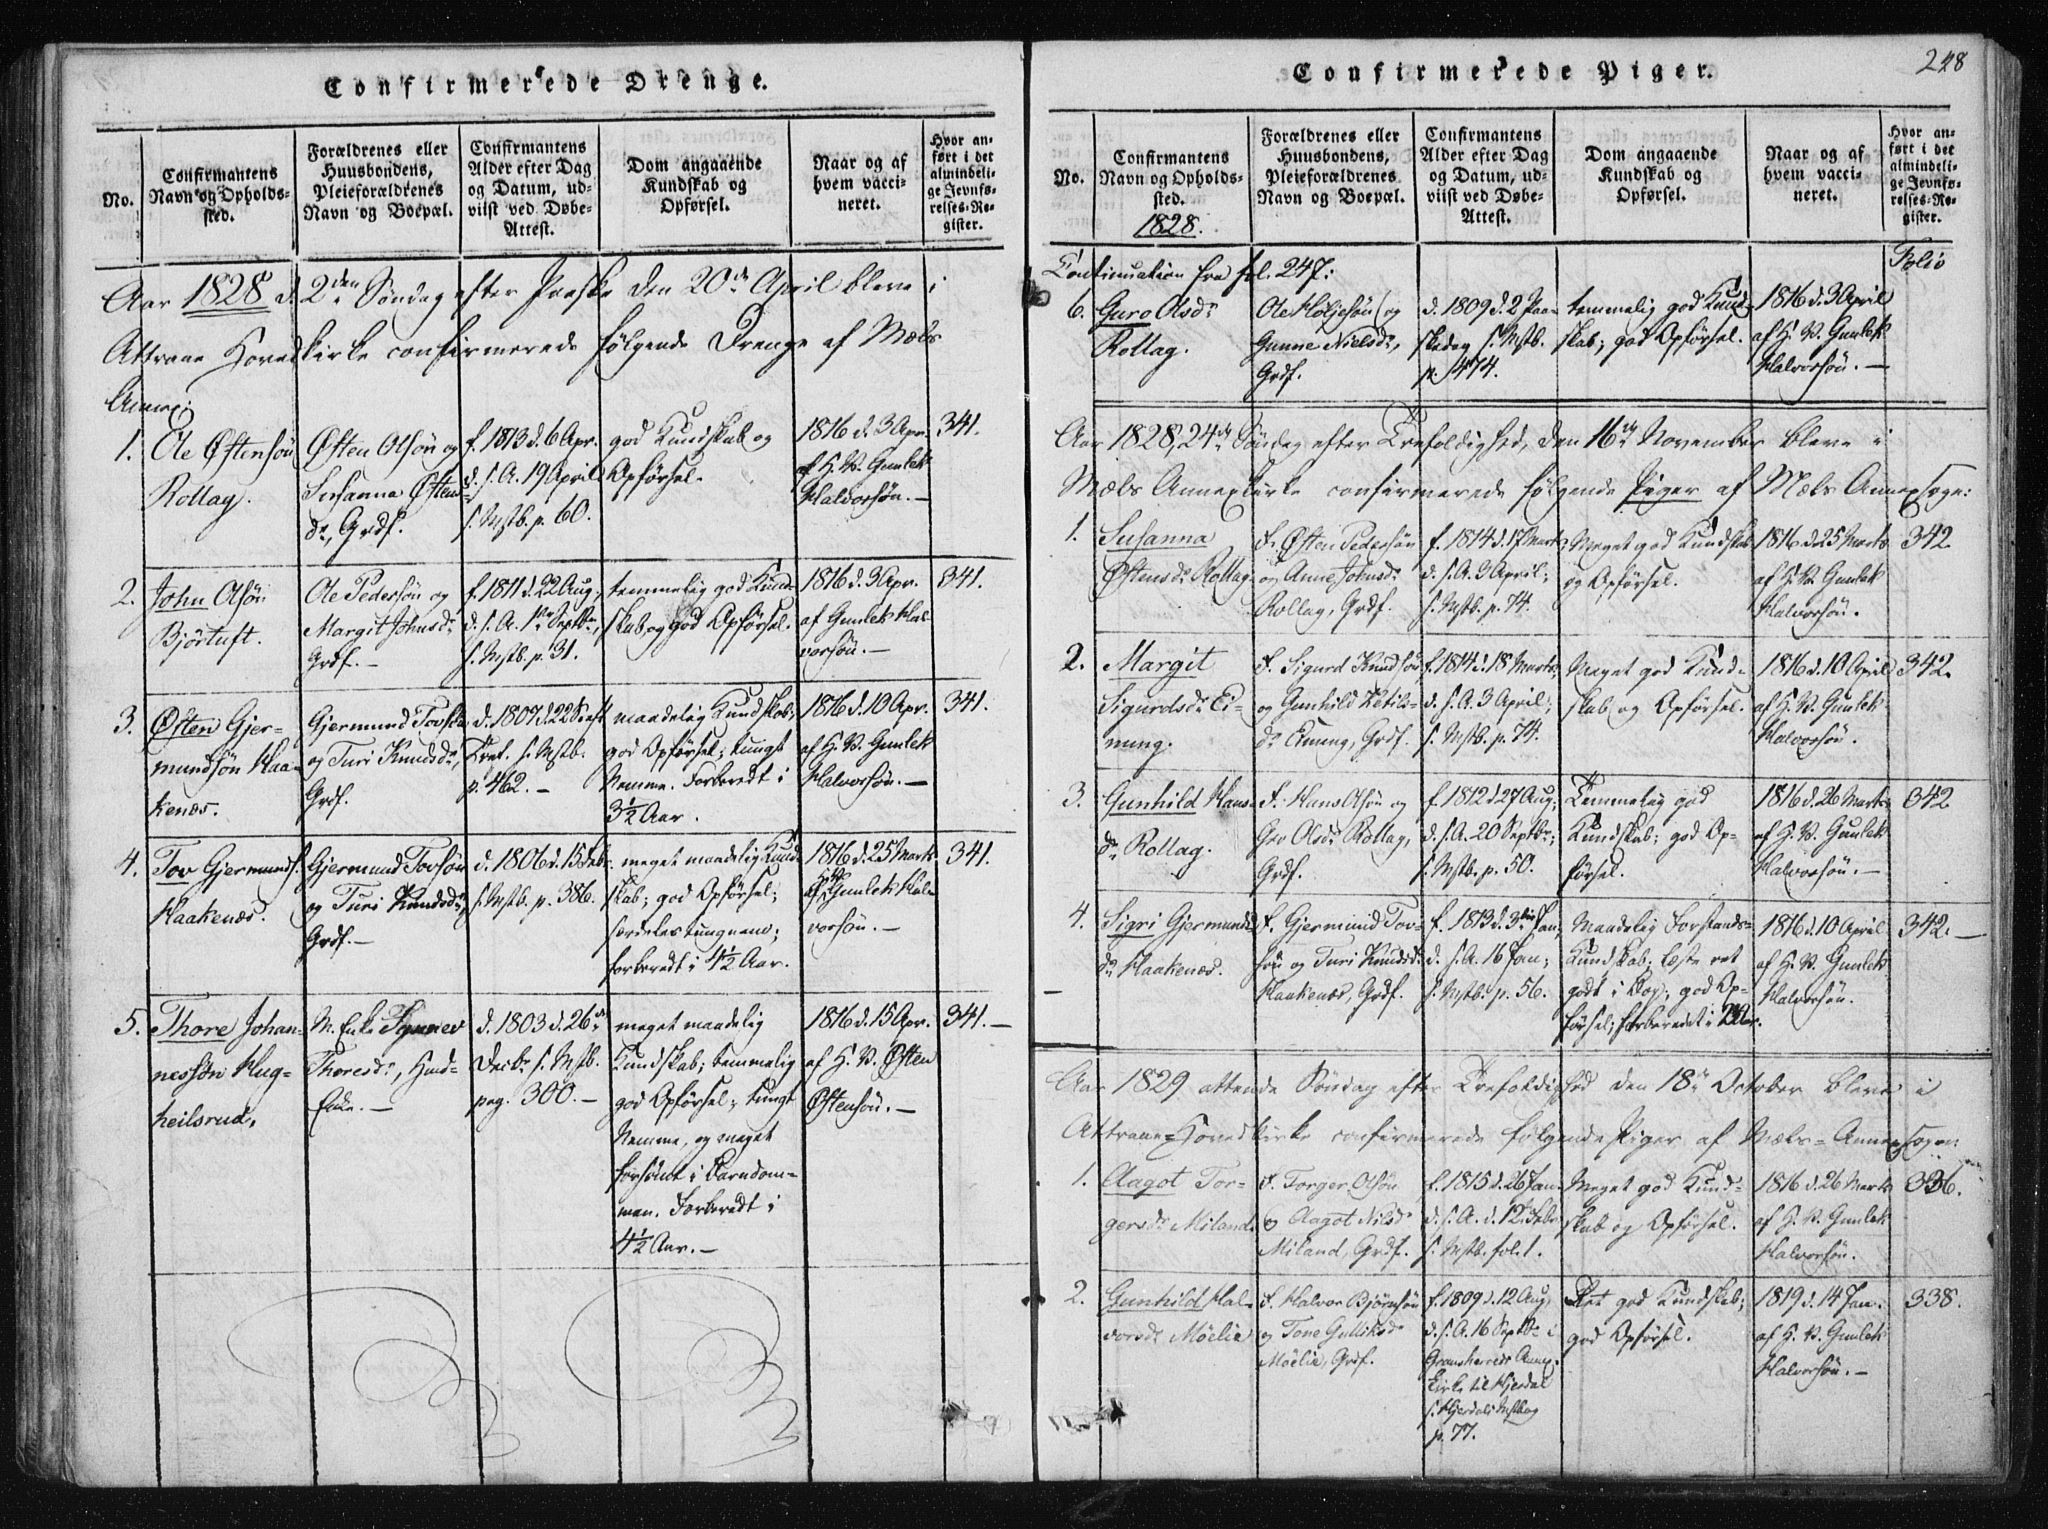 Confirmerede Drenge.
No.
Confirmantens
Navn og Opholds-
sted.
Forældrenes eller
Huusbondens,
Pleieforældrenes
Navn og Boepæl.
Confirmantens
Alder efter Dag
og Datum, ud-
viist ved Døbe-
Attest.
Dom angaaende
Kundskab og
Opførsel.
Naar og af
hvem vacci-
neret.
Hvor an-
ført i det
almindeli-
ge Jevnfø-
relses-Re-
gister.
Aar 1828 d. 2den Søndag efter Paaske den 20de April bleve i
Attraae Hovedkirke confirmerede følgende Drenge af Mæls
Annex;
1.
Ole Østensøn
Rollag.
Østen Olsøn og
Susanna Østens-
dr, Grdf.
f. 1813 d. 6 Apr.
d. s. A. 19 April
s. Mstb. p. 60.
god Kundskab og
Opførsel.
1816 d. 3 Apr.
af H. V. Gunlek
Halvorsøn. —
341.
2.
John Olsøn
Bjørtuft.
Ole Pedersøn og
Margit Johnsdr
Grdf. —
f. 1811 d. 22 Aug.
d. s. A. 1ste Septbr,
s. Mstb. p. 31.
temmelig god Kund-
skab og god Opførsel.
1816 d. 3 Apr.
af Gunlek Hal-
vorsøn. —
341.
3.
Østen Gjer-
mundsøn Haa-
kenæs.
Gjermund Tovsøn
og Turi Knudsdr,
Grdf.
d. 1807 d. 22 S. eft.
Tref. s. Mstb.
p. 462. —
maadelig Kundskab;
god Opførsel; tungt
Nemme. Forberedt i
3½ Aar.
1816 d. 10 Apr.
af H. V. Gunlek
Halvorsøn. —
341.
4.
Tov Gjermunds.
Haakenæs.
Gjermund Tovsøn
og Turi Knudsdr,
Grdf. —
d. 1806 d. 15 Febr.
s. Mstb. p. 386.
meget maadelig Kund-
skab; god Opførsel;
særdeles tungnem;
forberedt i 4½ Aar.
1816 d. 25 Marts
af H. V. Gunlek Hal-
vorsøn. —
341.
5.
Thore Johan-
nessøn Hug-
heilsrud.
M. Enke
Thoresdr, Huus-
Enke. —
d. 1803 d. 26de
Decbr s. Mstb.
pag. 300. —
meget maadelig
Kundskab; temmelig
god Opførsel; tungt
Nemme, og meget
forsømt i Barndom-
men. Forberedt i
4½ Aar. —
1816 d. 15 Apr.
af H. V. Østen
Østensøn. —
341. —
248
Confirmerede Piger.
No.
Confirmantens
Navn og Opholds-
sted.
1828.
Forældrenes eller
Huusbondens,
Pleieforældrenes
Navn og Boepæl.
Confirmantens
Alder efter Dag
og Datum, ud-
viist ved Døbe-
Attest.
Dom angaaende
Kundskab og
Opførsel.
Naar og af
hvem vacci-
neret.
Hvor an-
ført i det
almindeli-
ge Jevnfø-
relses-Re-
gister.
Folio
Continuation fra fol. 247:
6.
Guro Olsdr
Rollag.
Ole Holjesøn og
Gunne Nielsdr,
Grdf.
d. 1809 d. 2 Paa-
skedag s. Mstb.
p. 474.
temmelig god Kund-
skab; god Opførsel.
1816 d. 3 April
af H. V. Gunlek
Halvorsøn. —
Aar 1828, 24de Søndag efter Trefoldighed, den 16de November bleve i
Mæls Annexkirke confirmerede følgende Piger af Mæls Annexsogn:
1.
Susanna
Østensdr Rollag.
F. Østen Pedersøn
og Anne Johnsdr
Rollag, Grdf.
f. 1814 d. 17 Marts
d. s. A. 3 April;
s. Mstb. p. 74.
Meget god Kundskab
og Opførsel.
1816 d. 25 Marts
af H. V. Gunlek
Halvorsøn.
342
2.
Margit
Sigurdsdr Ei-
nung.
F. Sigurd Knudsøn
og Gunhild Ketils-
dr Einung, Grdf.
f. 1814 d. 18 Marts
d. s. A. 3 April;
s. Mstb. p. 74.
Meget god Kund-
skab og Opførsel.
1816 d. 10 April
af H. V. Gunlek
Halvorsøn.
342.
3.
Gunhild Hans-
dr Rollag.
F. Hans Olsøn og
Gro Olsdr Rollag,
Grdf.
f. 1812 d. 27 Aug;
d. s. A. 20 Septbr;
s. Mstb. p. 50.
Temmelig god
Kundskab; god Op-
førsel.
1816 d. 26 Marts
af H. V. Gunlek
Halvorsøn. —
342
4.
Sigri Gjermunds-
dr Haakenæs.
F. Gjermund Tov-
søn og Turi Knudsdr
Haakenæs, Grdf.
f. 1813 d. 3die Jan;
d. s. A. 16 Jan;
s. Mstb. p. 56.
Maadelig Forstands-
Kundskab; læste ret
godt i Bog; god Op-
førsel; forberedet i 2 Aar.
1816 d. 10 April
af H. V. Gunlek
Halvorsøn.
342. —
Aar 1829 attende Søndag efter Trefoldighed den 18de October bleve i
Attraae Hovedkirke confirmerede følgende Piger af Mæls-Annexsogn:
1.
Aagot Tor-
gersdr Miland.
F. Torger Olsøn
og Aagot Nilsdr
Miland, Grdf.
f. 1815 d. 26 Jan.
d. s. A. d. 12 Febr.
s. Mstb. fol. 1.
Meget god Kund-
skab og Opførsel.
1816 d. 26 Marts
af H. V. Gunlek
Halvorsøn.
336.
2.
Gunhild Hal-
vorsdr Möelie
F. Halvor Bjørnsøn
og Tone Gulliksdr
Möelie, Grdf.
f. 1809 d. 12 Aug,
d. s. A. 16 Septbr i
Gransherreds Annex-
Kirke til Hjerdal
s. Hjerdals Mstbog
p. 77.
Ret god Kundskab;
god Opførsel.
1819 d. 14 Jan.
af H. V. Gunlek
Halvorsøn. —
338.